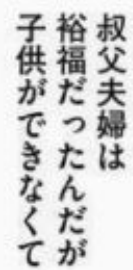 叔父夫婦は
裕福だったんだが
子供ができなくて